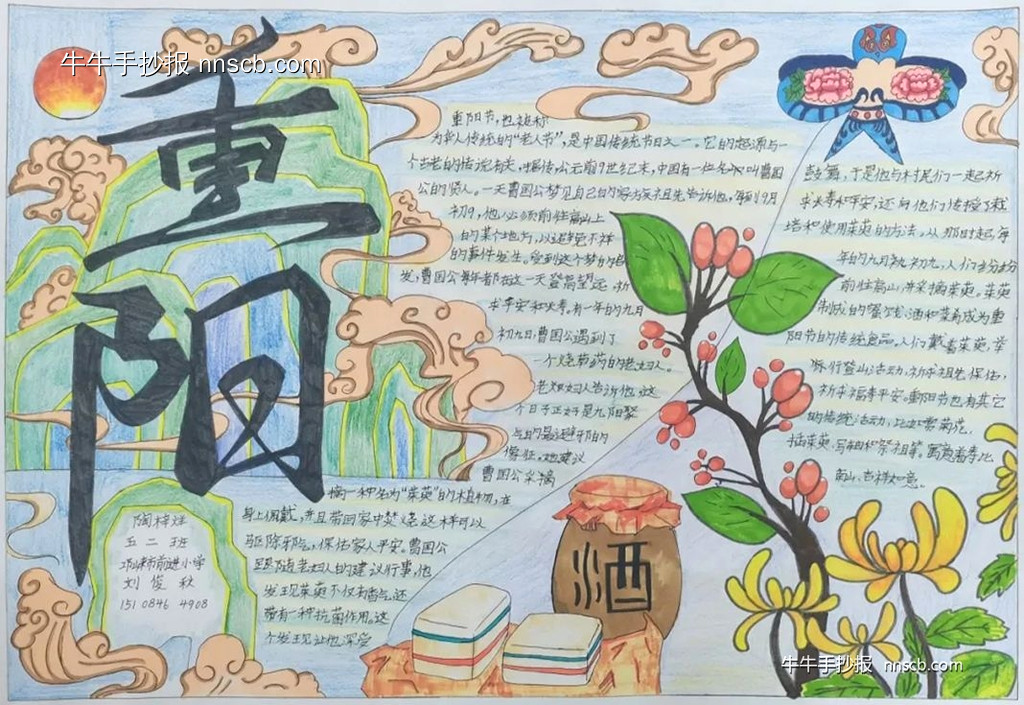 牛牛手抄报 nnscb.com
重
阳
重阳节,也被称
为华人传统的“老人节”,是中国传统节日之一。它的起源与一
个古老的传说有关。据传,公元前9世纪末,中国有一位名叫曹国
公的贤人。一天曹国公梦见自己的家族祖先告诉他,每到9月
初9,他必须前往高山上
的某个地方,以避免不祥
的事件发生。受到这个梦的启
发,曹国公每年都在这一天登高望远,祈
求平安和长寿。有一年的九月
初九日曹国公遇到了
一个烧草药的老妇人。
老妇人告诉他,这
个日子正好是九阳聚
曹国公采摘
摘一种名为“茱萸”的植物,在
身上佩戴,并且带回家中焚烧,这样可以
驱除邪气,保佑家人平安。曹国公
跟随老妇人的建议行事,他
发现茱萸不仅有香气,还
带有一种抗菌作用。这
个发现让他深受
鼓舞,于是他与村民们一起祈
求长寿和平安,还向他们传授了栽
培和使用茱萸的方法。从那时起,每
年的九月初九,人们
前往高山,并采摘茱萸。茱萸
制成的餐饮、酒和菜肴成为重
阳节的传统食品。人们戴着茱萸,举
行登山活动,祈求祖先保佑,
祈求福寿平安。重阳节也有其它
的传统活动,比如赏菊花、
插茱萸、写和祭祖等。
南山,吉祥如意。
酒
五二班
邛崃市前进小学
刘俊秋
131 0846 4908
牛牛手抄报 nnscb.com